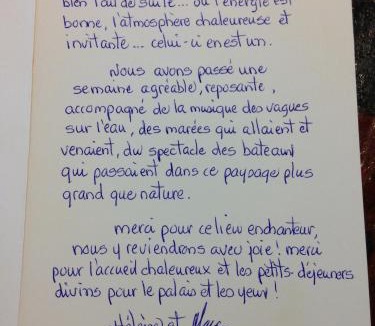 bien l'air de suite... où l'énergie est
bonne, l'atmosphère chaleureuse et
invitante... celui-ci en est un.
Nous avons passé une
semaine agréable, reposante,
accompagné de la musique des vagues
sur l'eau, des marées qui allaient et
venaient, du spectacle des bateaux
qui passaient dans ce paysage plus
grand que nature.
merci pour ce lieu enchanteur,
nous y reviendrons avec joie! merci
pour l'accueil chaleureux et les petits-déjeuners
divins pour le palais et les yeux!
et